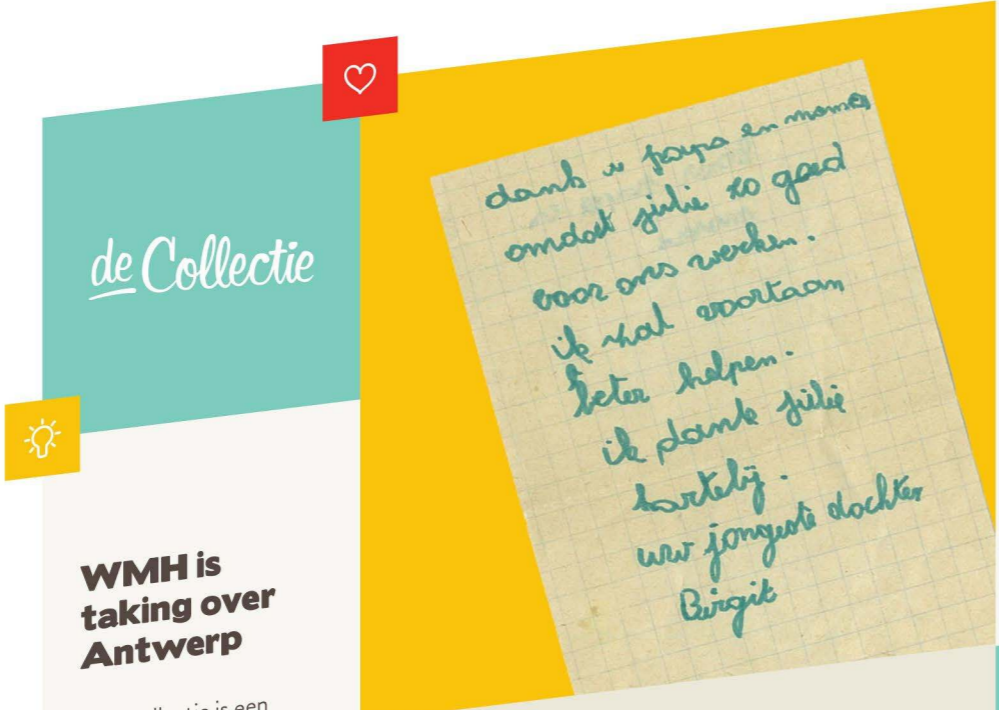 de Collectie
WMH is
taking over
Antwerp
llectie is een
dank u papa en mama
omdat jullie zo goed
voor ons werken.
ik zal voortaan
beter helpen.
ik dank jullie
hartelij.
uw jongste dochter
Birgit